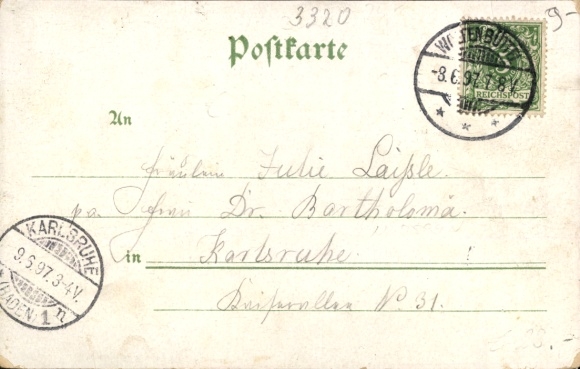 3320
9-
Postkarte
WOLFENBÜTTEL
-8.6.97.7-8V.
REICHSPOST
An
Fräulein Julie Laißle.
pa. Frau Dr. Bartholomä.
in Karlsruhe.
Kaiserallee N. 31.
KARLSRUHE
9.6.97.3-4V.
(BADEN) 1 n